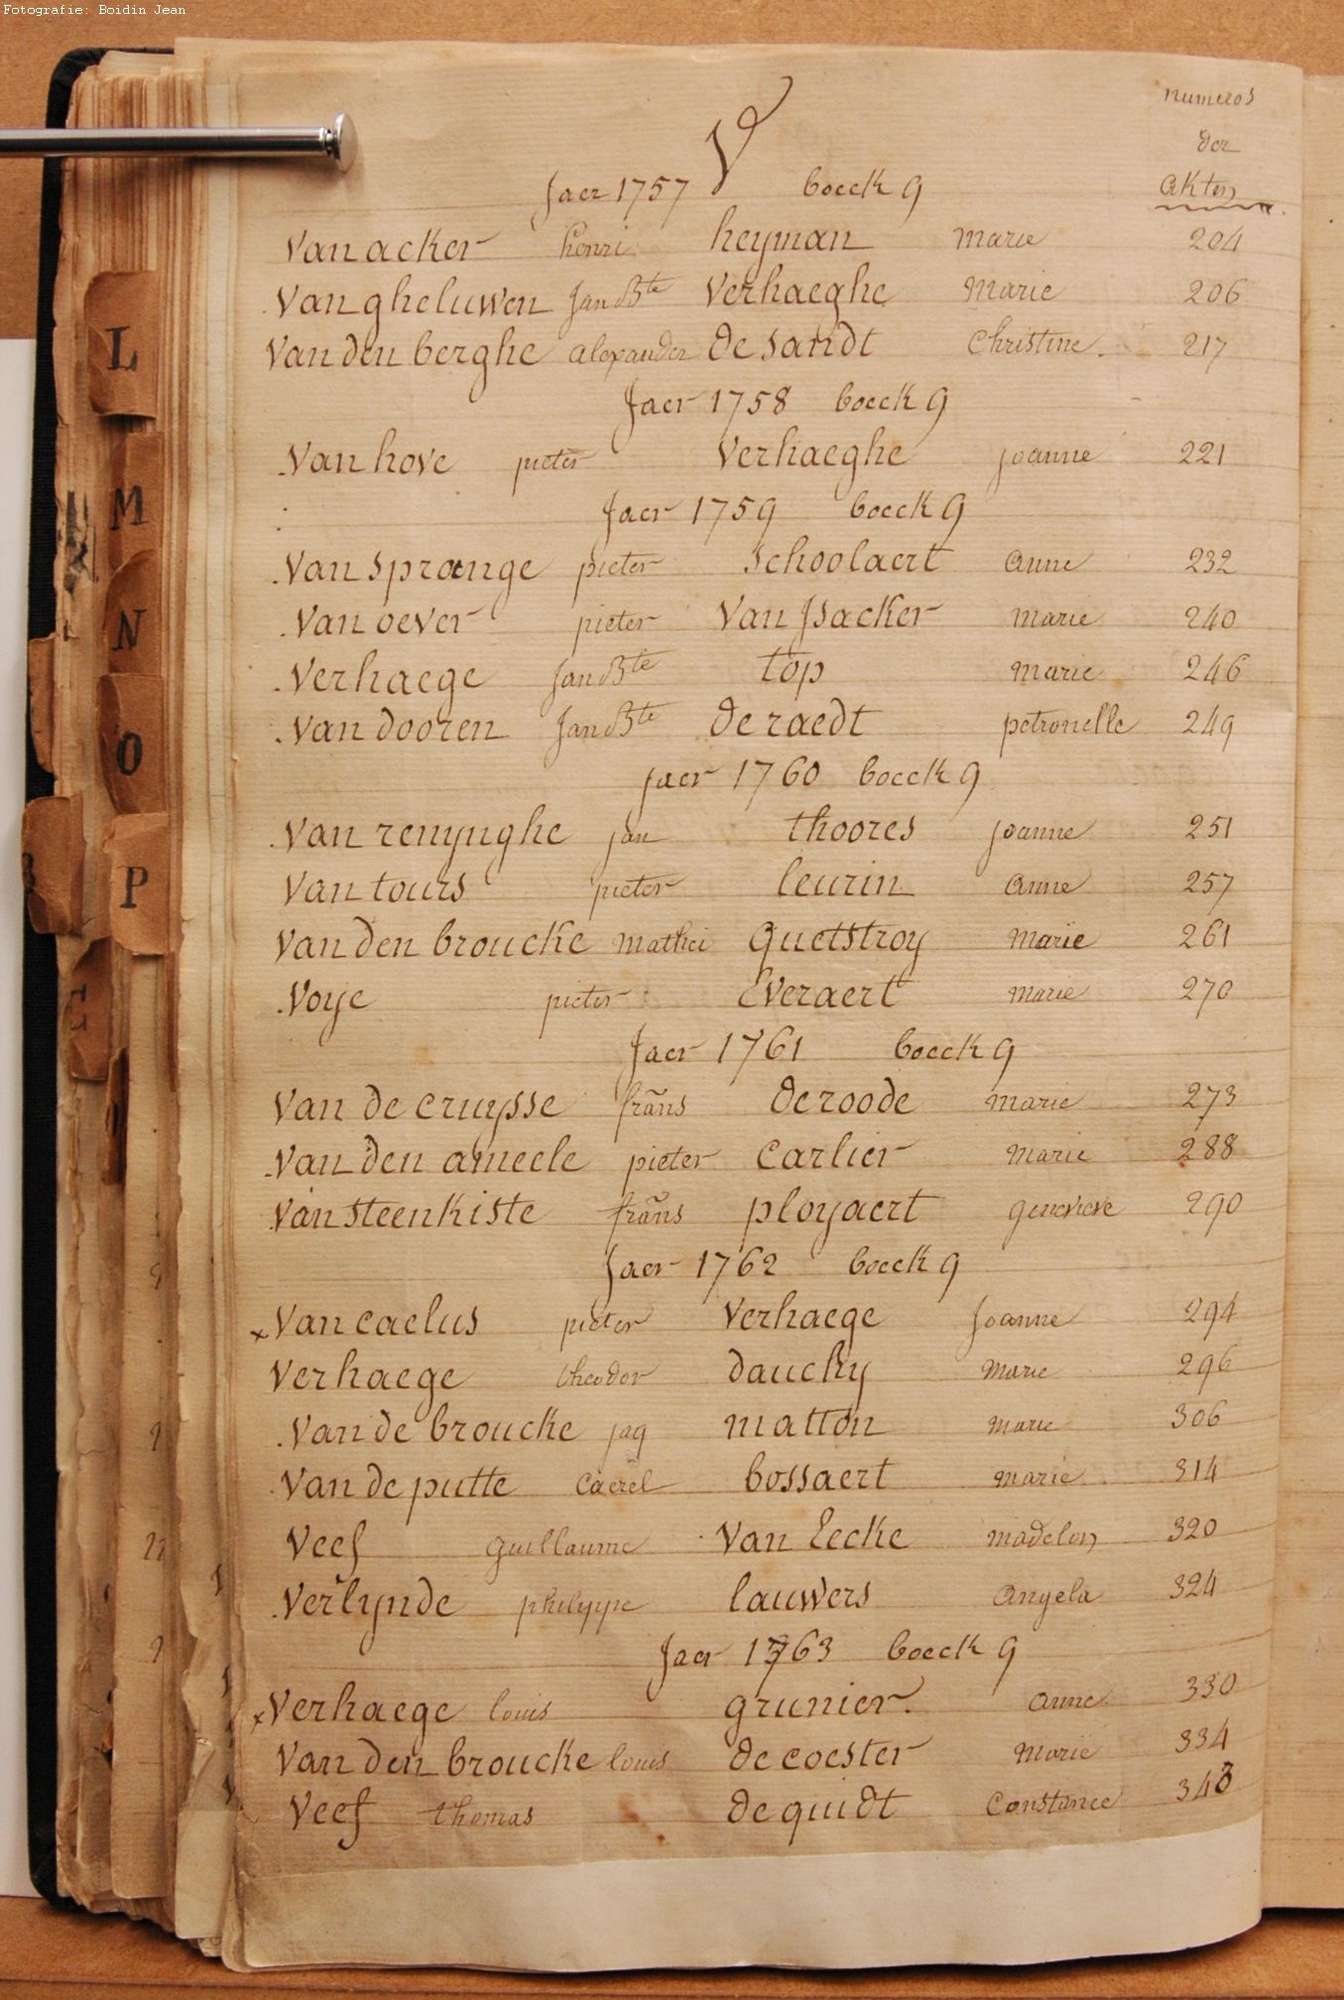 Fotografie: Boidin Jean
numeros
der
akten
V
Jaer 1757 boeck 9
Van acker henri heyman Marie 204
Van gheluwen Jan Bte Verhaeghe Marie 206
Van den berghe alexander de sandt Christine. 217
Jaer 1758 boeck 9
Van hove pieter Verhaeghe joanne 221
Jaer 1759 boeck 9
Van sprange pieter schoolaert anne 232
Van oever pieter Van Jsacker marie 240
Verhaege Jan Bte top marie 246
Van dooren Jan Bte de raedt petronelle 249
jaer 1760 boeck 9
Van renynghe jan thoores joanne 251
Van tours pieter leurin anne 257
Van den broucke mathei quetstroy marie 261
Voye pieter Everaert marie 270
Jaer 1761 boeck 9
Van de cruysse frans de roode marie 273
Van den ameele pieter carlier marie 288
Van steenkiste frans ployaert genevieve 290
Jaer 1762 boeck 9
x Van caelus pieter Verhaege Joanne 294
Verhaege theodor dauchy Marie 296
Van de broucke jaq matton marie 306
Van de putte Caerel bossaert marie 314
Veef guillaume Van Lecke madelon 320
Verlynde philyppe lauwers angela 324
Jaer 1763 boeck 9
x Verhaege louis grunier. anne 330
Van den broucke louis de coester Marie 334
Veef thomas de quidt Constance 343
L
M
N
O
P